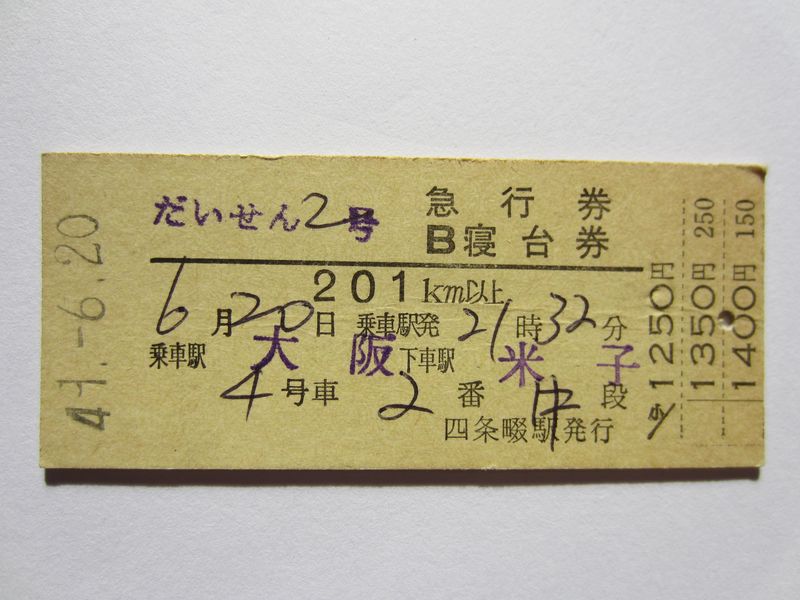 41.-6.20
だいせん2号
急行券
B寝台券
201km以上
6月20日 乗車駅発 21時32分
乗車駅 大阪 下車駅 米子
4号車 2番 中段
四条畷駅発行
1250円
1350円 250
1400円 150